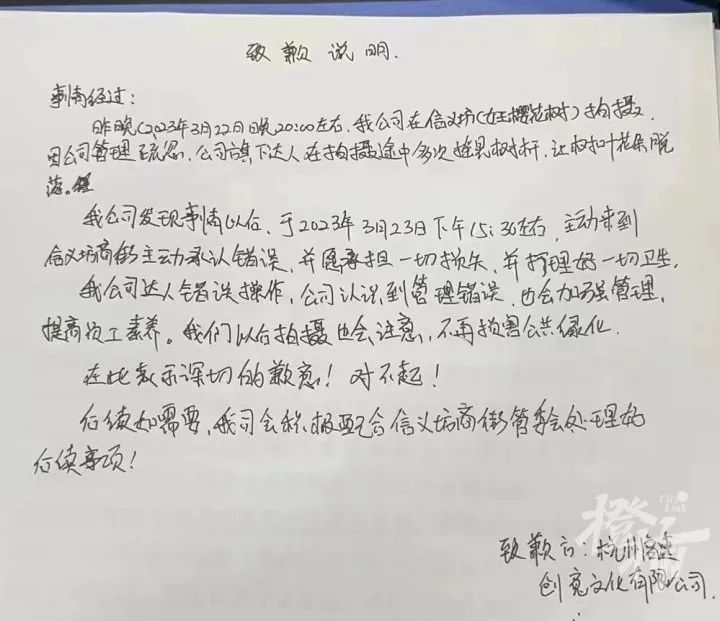 致歉说明.
事情经过:
昨晚(2023年3月22日晚20:00左右,我公司在信义坊(女王樱花树)拍摄.
因公司管理疏忽,公司旗下达人在拍摄途中多次摇晃树杆,让树叶花朵脱
落。
我公司发现事情以后,于2023年3月23日下午15:30左右,主动来到
信义坊商街主动承认错误,并愿承担一切损失,并打理好一切卫生.
我公司达人错误操作,公司认识到管理错误,也会加强管理,
提高员工素养。我们以后拍摄也会注意,不再损害公共绿化.
在此表示深切的歉意!对不起!
后续如需要,我司会积极配合信义坊商街管委会处理好
后续事项!
City Link
橙柿
致歉方:杭州
创意文化有限公司.